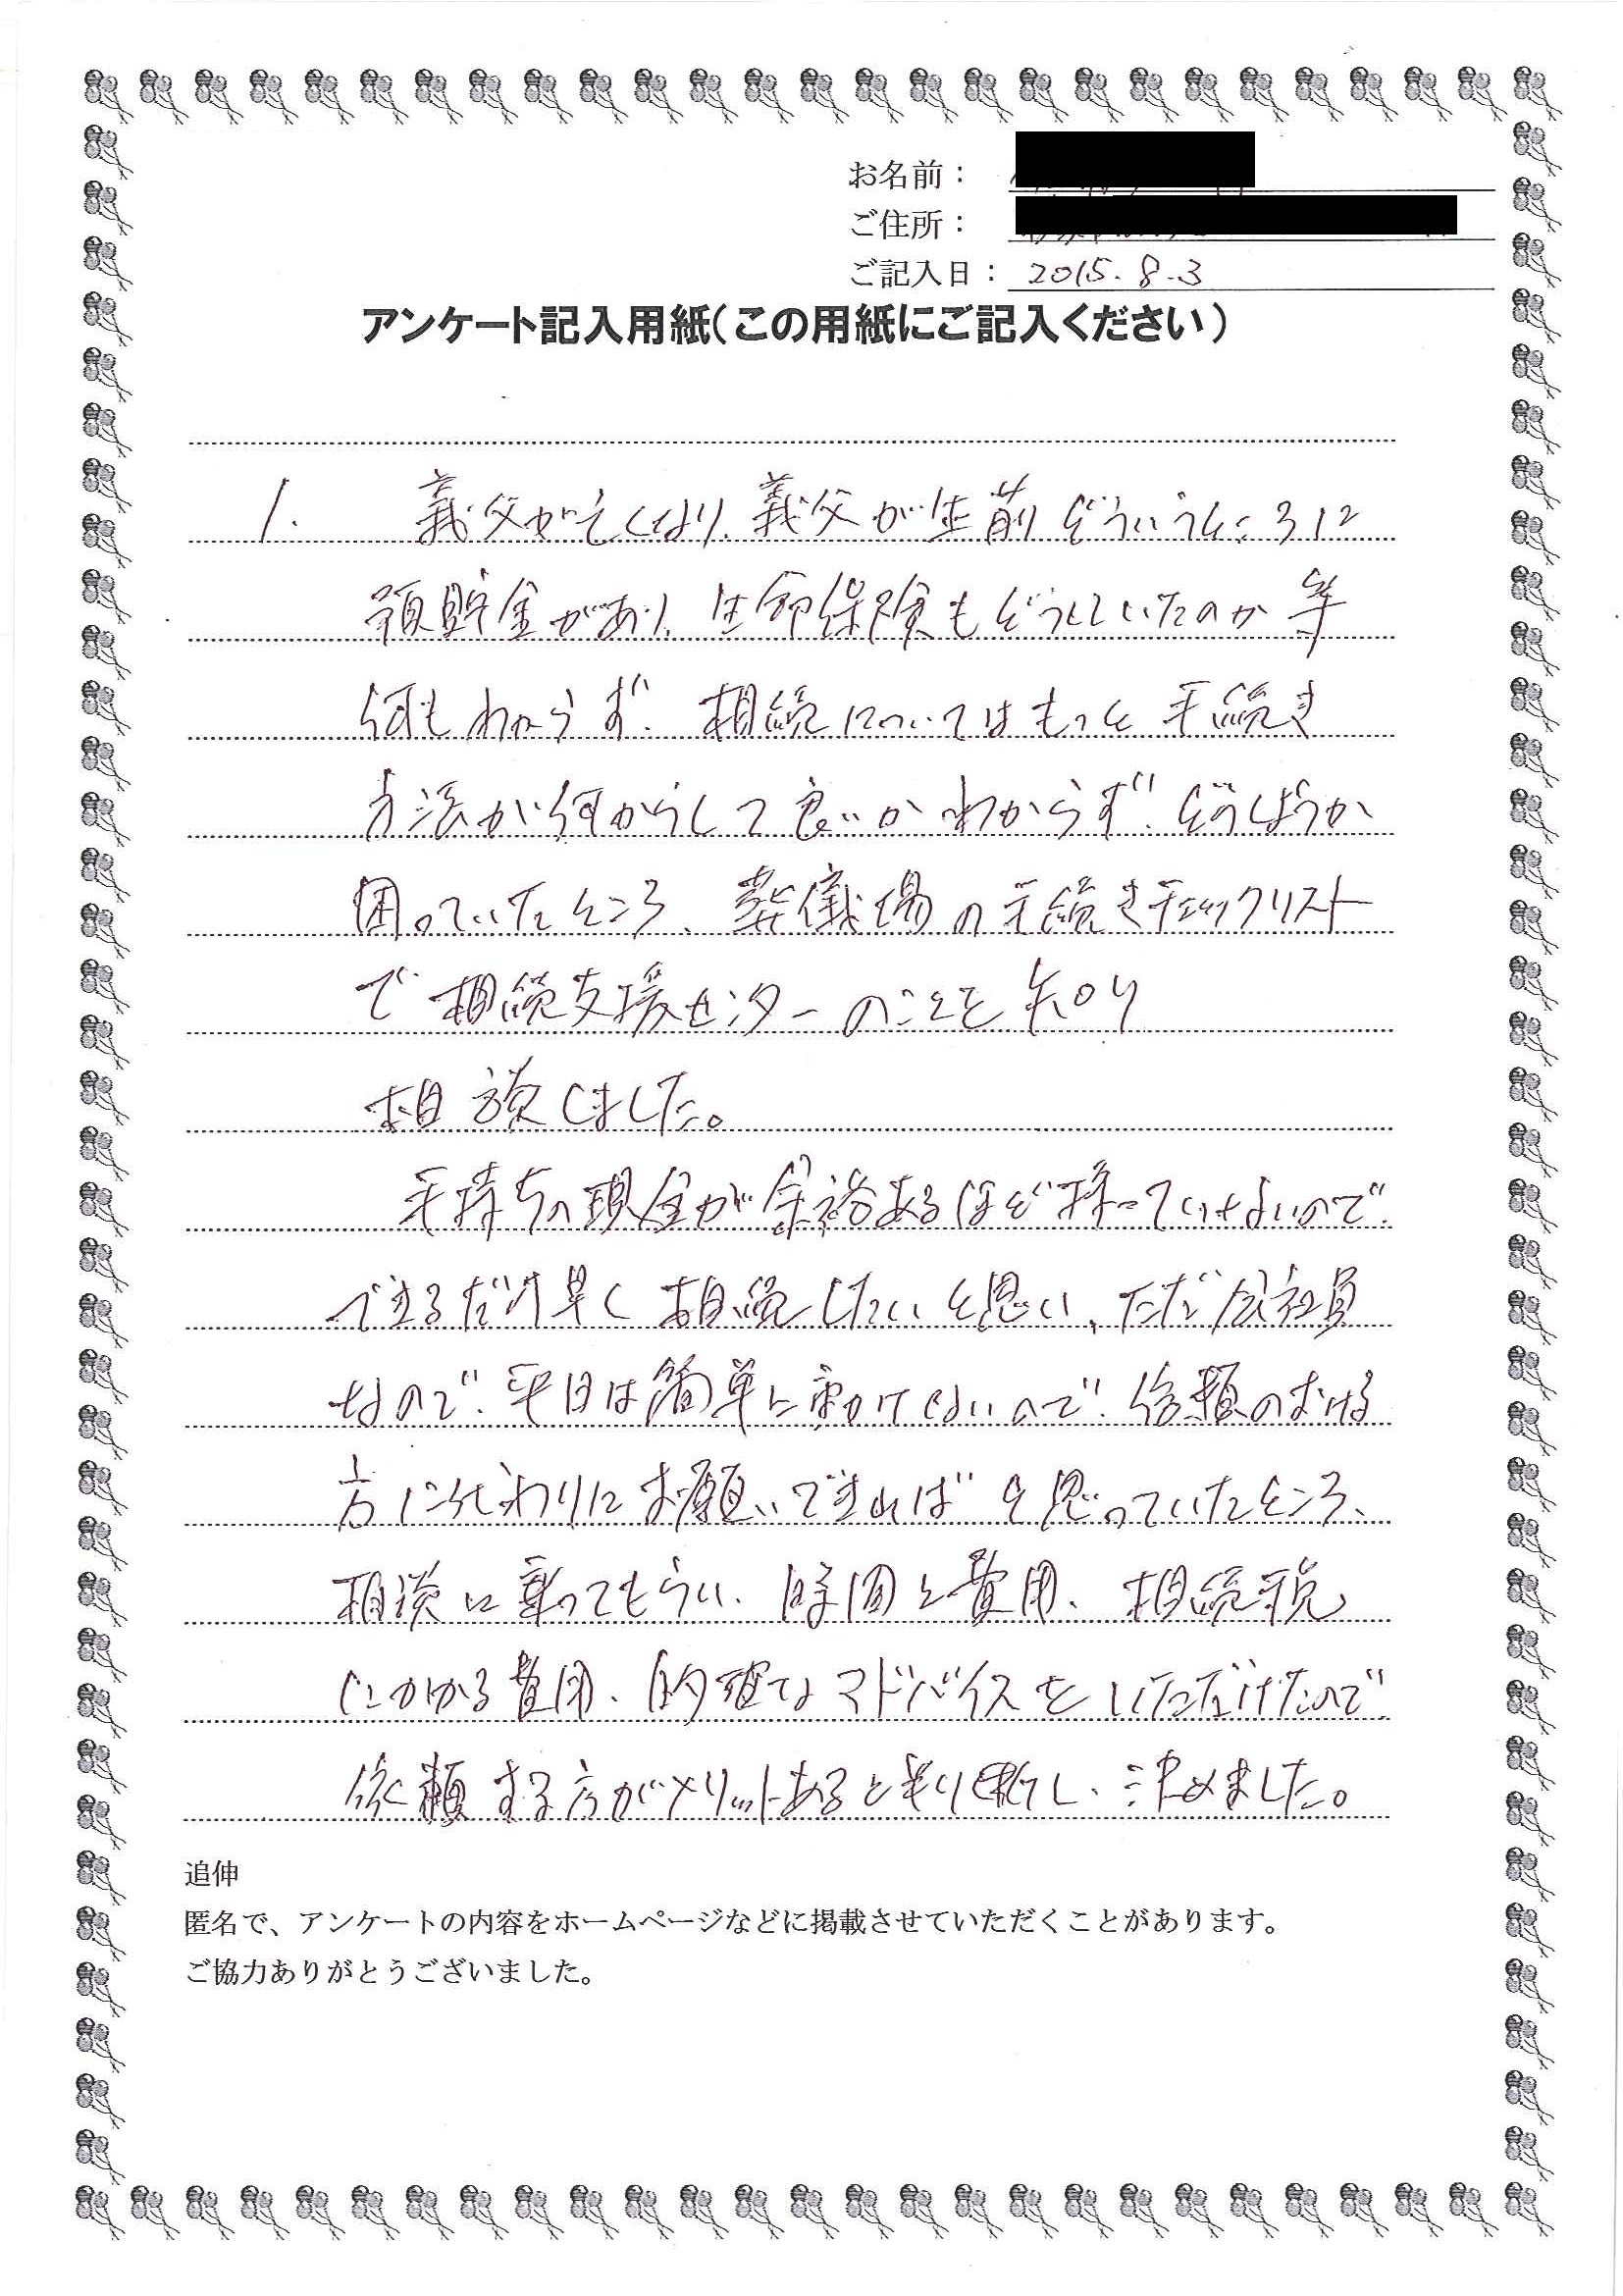 お名前：
ご住所：
ご記入日： 2015.8.3
アンケート記入用紙（この用紙にご記入ください）
1. 義父が亡くなり、義父が生前どういうところに
預貯金があり、生命保険もどうしていたのか等
何もわからず、相続についてはもっと手続き
方法が何からして良いかわからず、どうしようか
困っていたところ、葬儀場の手続きチェックリスト
で相続支援センターのことを知り
相談しました。
手持ちの現金が余裕あるほど持っていないので、
できるだけ早く相続したいと思い、ただ会社員
なので、平日は簡単に動けないので、信頼のおける
方に代わりにお願いできればと思っていたところ、
相談に乗ってもらい、時間と費用、相続税
にかかる費用、的確なアドバイスをいただけたので、
依頼する方がメリットあると判断し、決めました。
追伸
匿名で、アンケートの内容をホームページなどに掲載させていただくことがあります。
ご協力ありがとうございました。